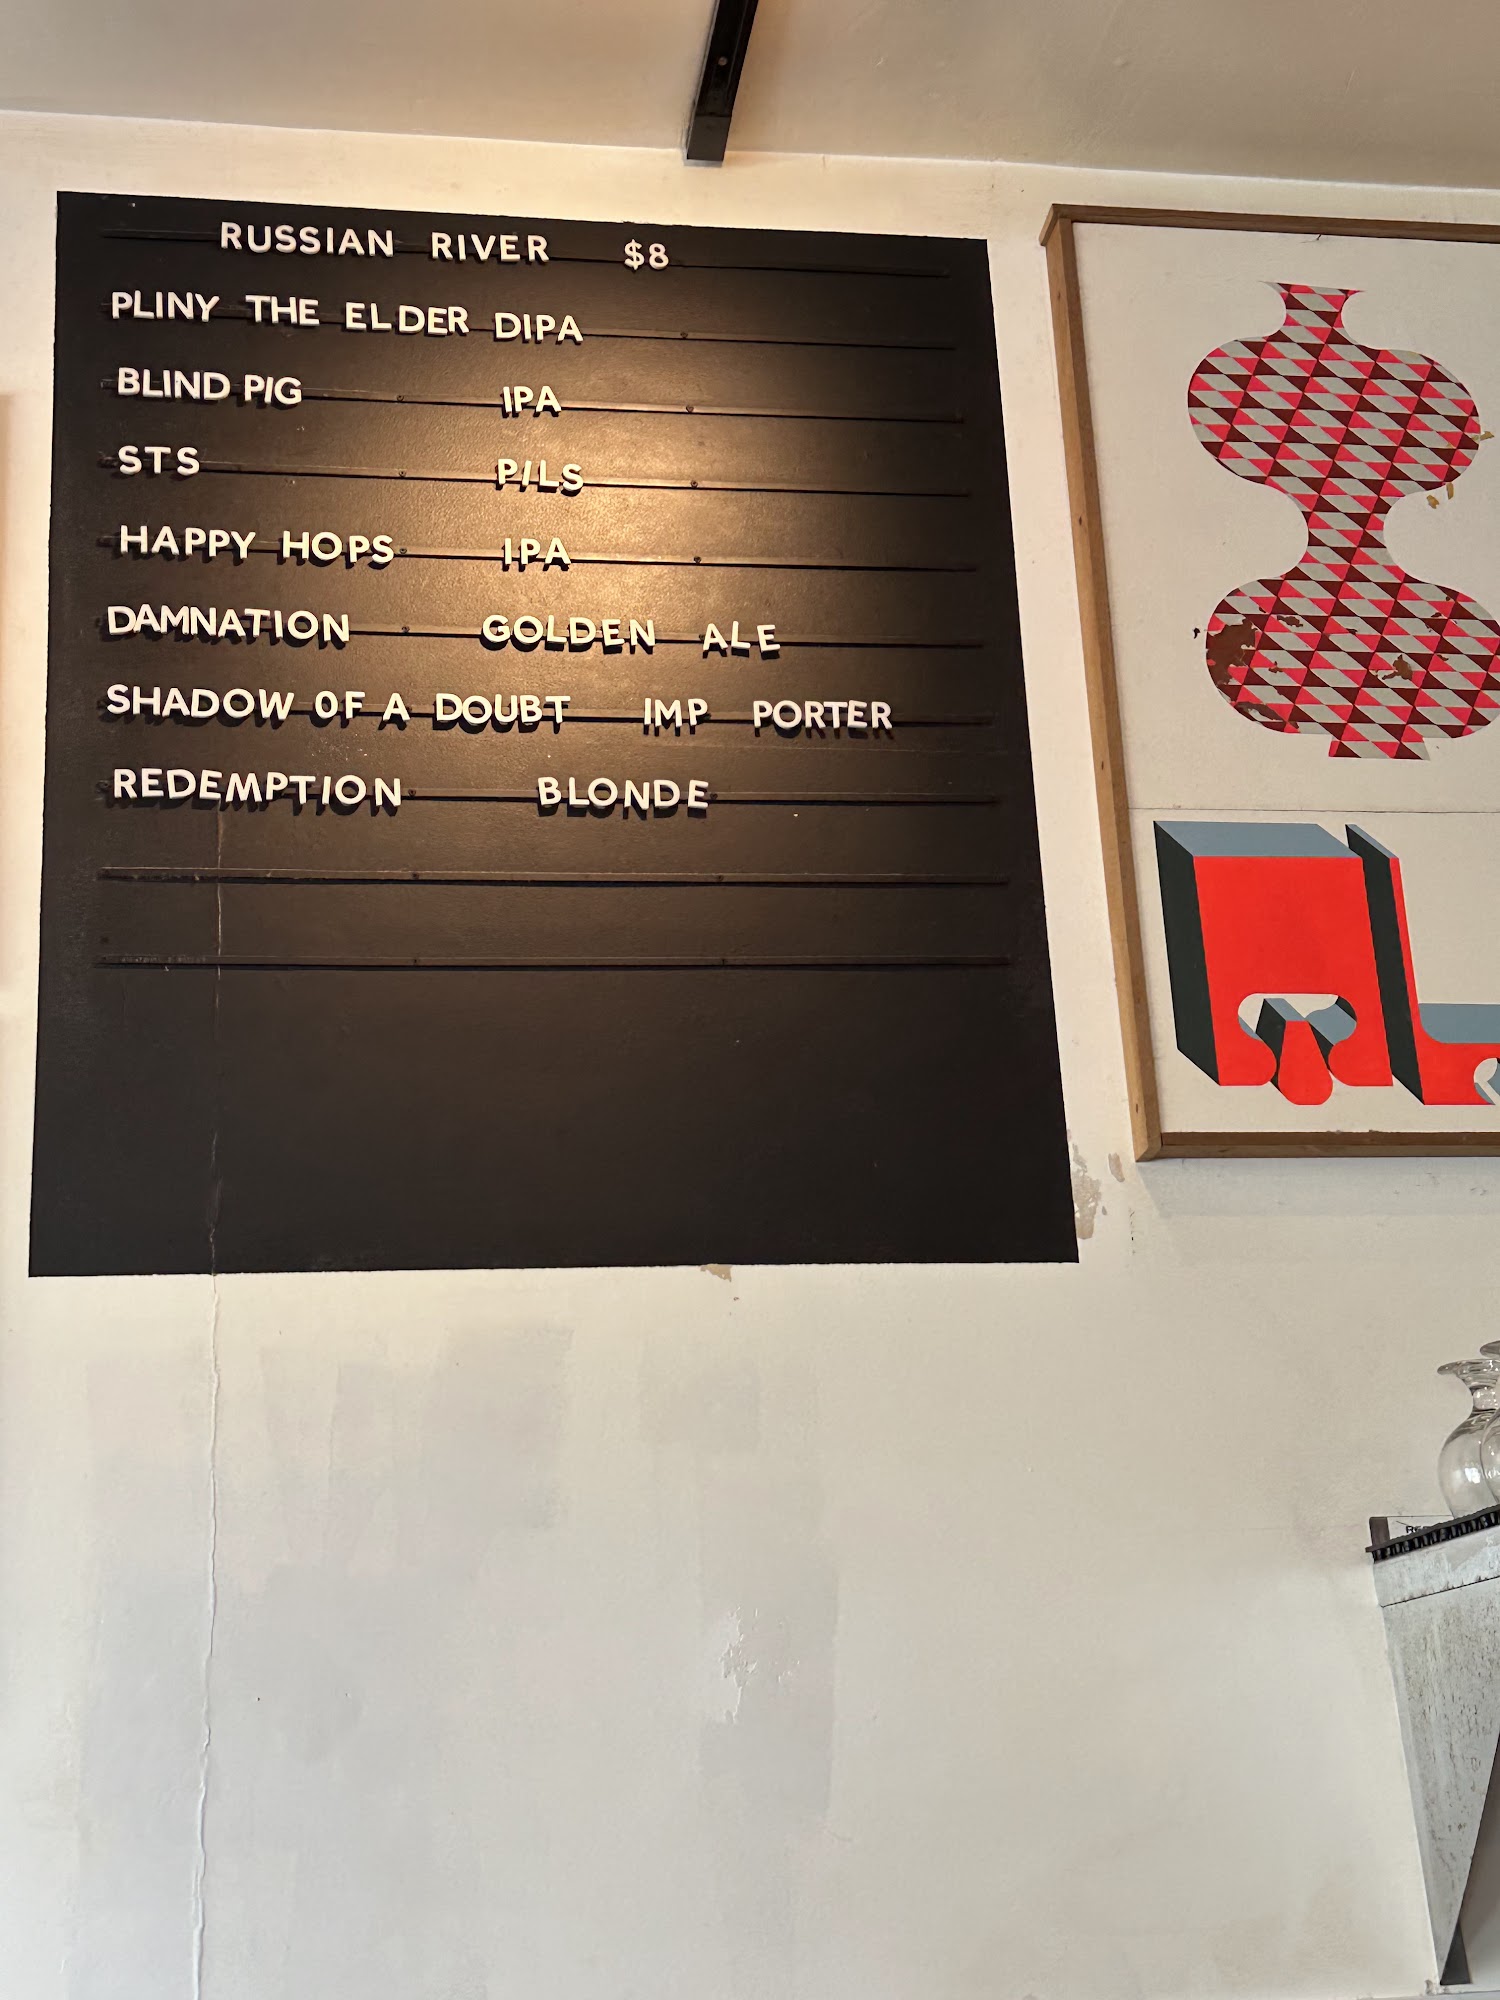 RUSSIAN RIVER $8
PLINY THE ELDER DIPA
BLIND PIG IPA
STS PILS
HAPPY HOPS IPA
DAMNATION GOLDEN ALE
SHADOW OF A DOUBT IMP PORTER
REDEMPTION BLONDE